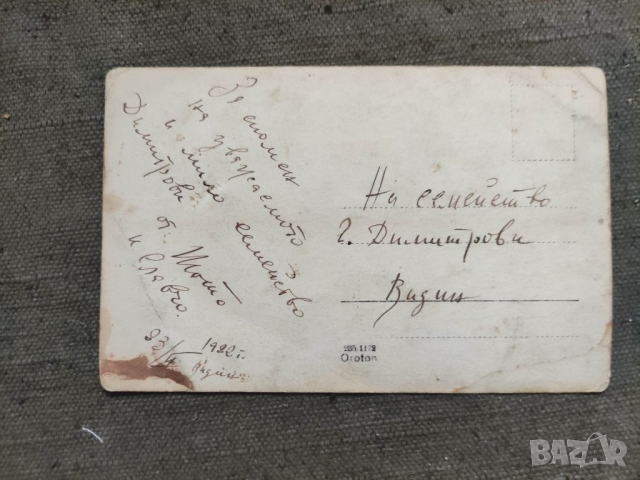 За спомен
на уважаемото
и мило семейство
Димитрови от Тото
и Славчо.
23/II 1922 г.
Видин
На семейство
Г. Димитрови
Видин
Oroton
BAZAR